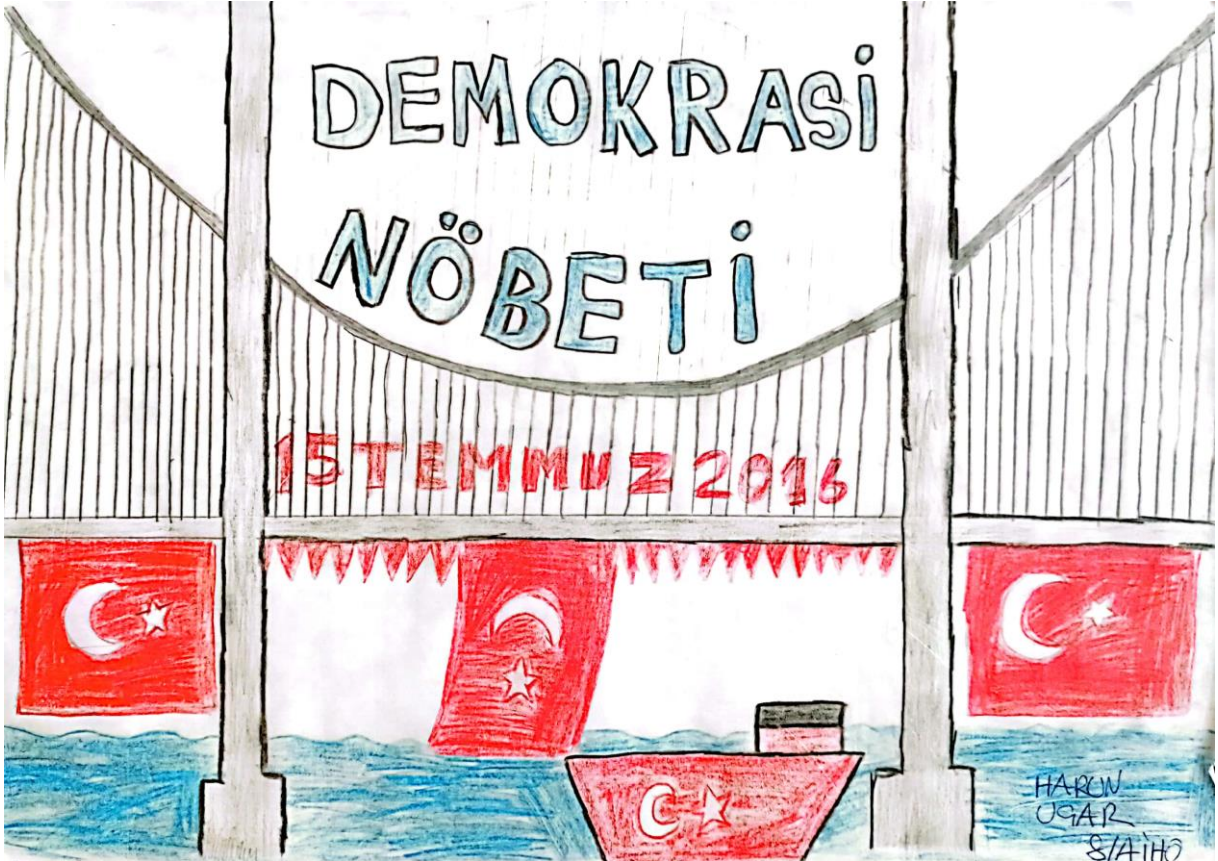 DEMOKRASİ
NÖBETİ
15 TEMMUZ 2016
HARUN
UGAR
8/A İHO